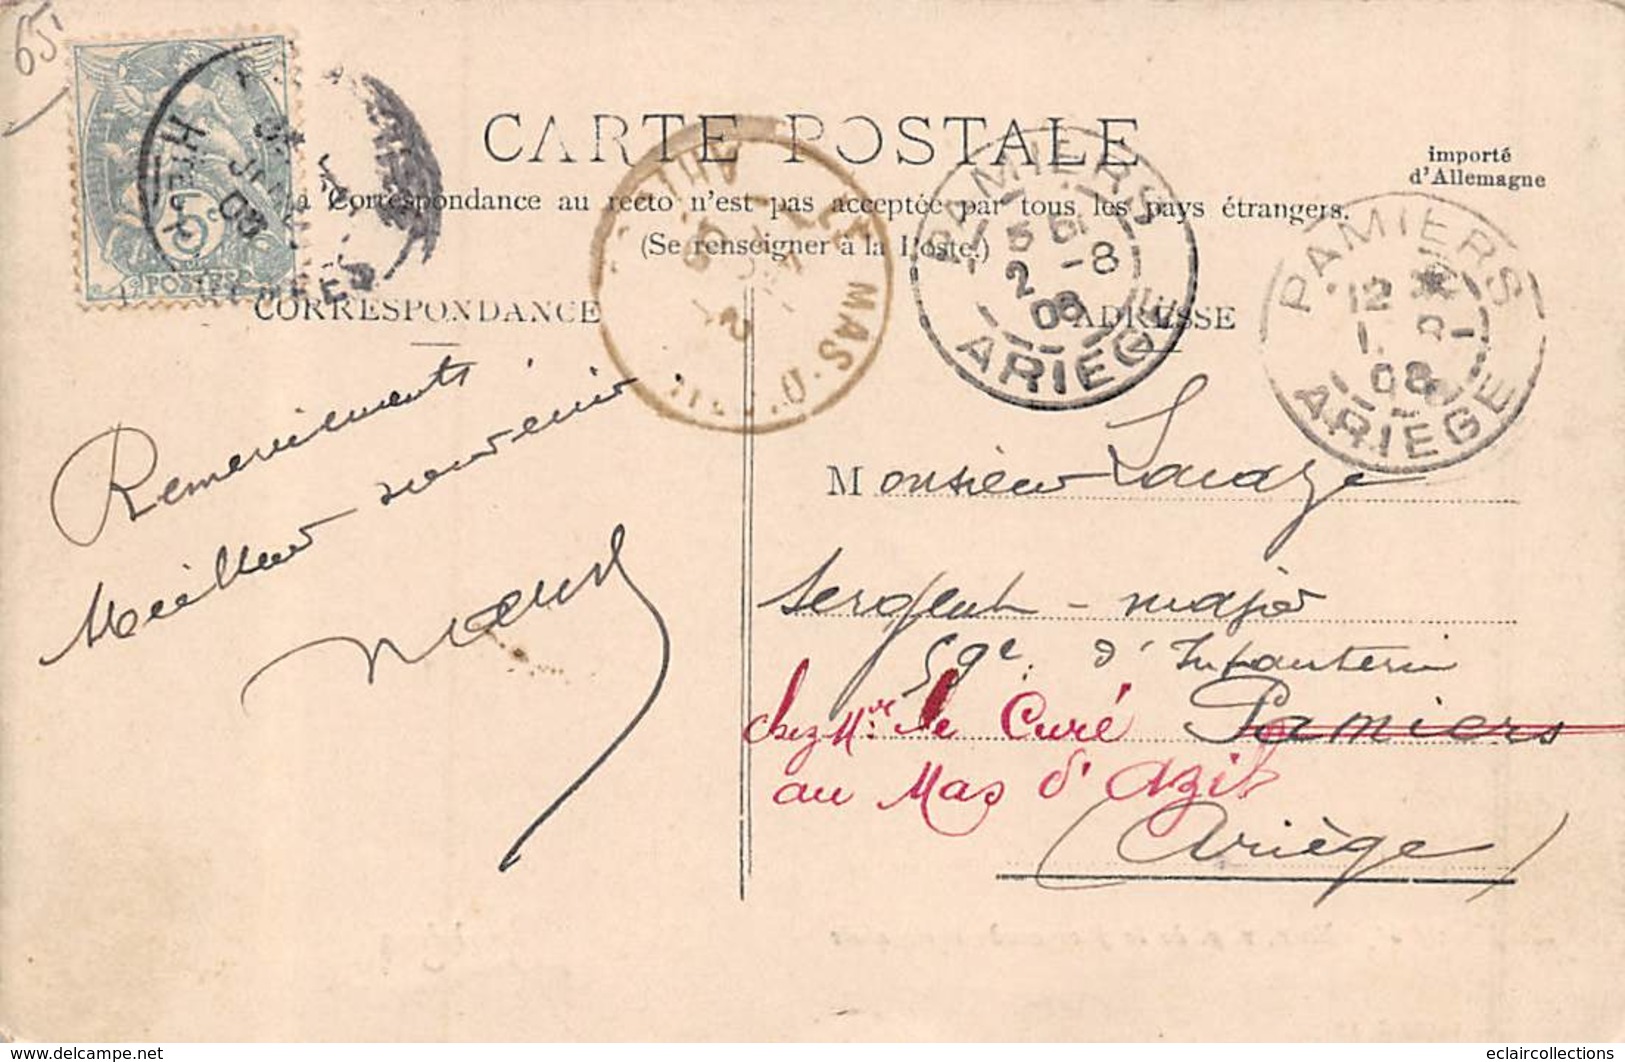 65
CARTE POSTALE
importé
d'Allemagne
La Correspondance au recto n'est pas acceptée par tous les pays étrangers.
(Se renseigner à la Poste.)
5c
POSTES
PAMIERS
5 2 -8
08
ARIEGE
PAMIERS
12
1
08
ARIEGE
LE MAS-D'AZIL
CORRESPONDANCE
ADRESSE
Remerciements
Meilleur souvenir
Monsieur
Sergent-major
59e d'Infanterie
chez Mr le Curé Pamiers
au Mas d'Azil
(Ariège)
eclaircollections